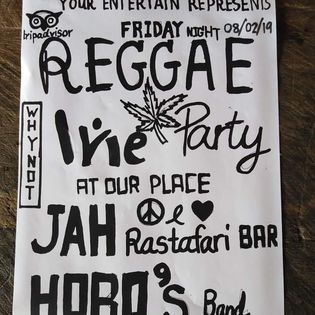 YOUR ENTERTAIN REPRESENTS
tripadvisor
FRIDAY NIGHT 08/02/19
REGGAE
WHY NOT
Irie Party
AT OUR PLACE
JAH Rastafari BAR
HOBO'S Band